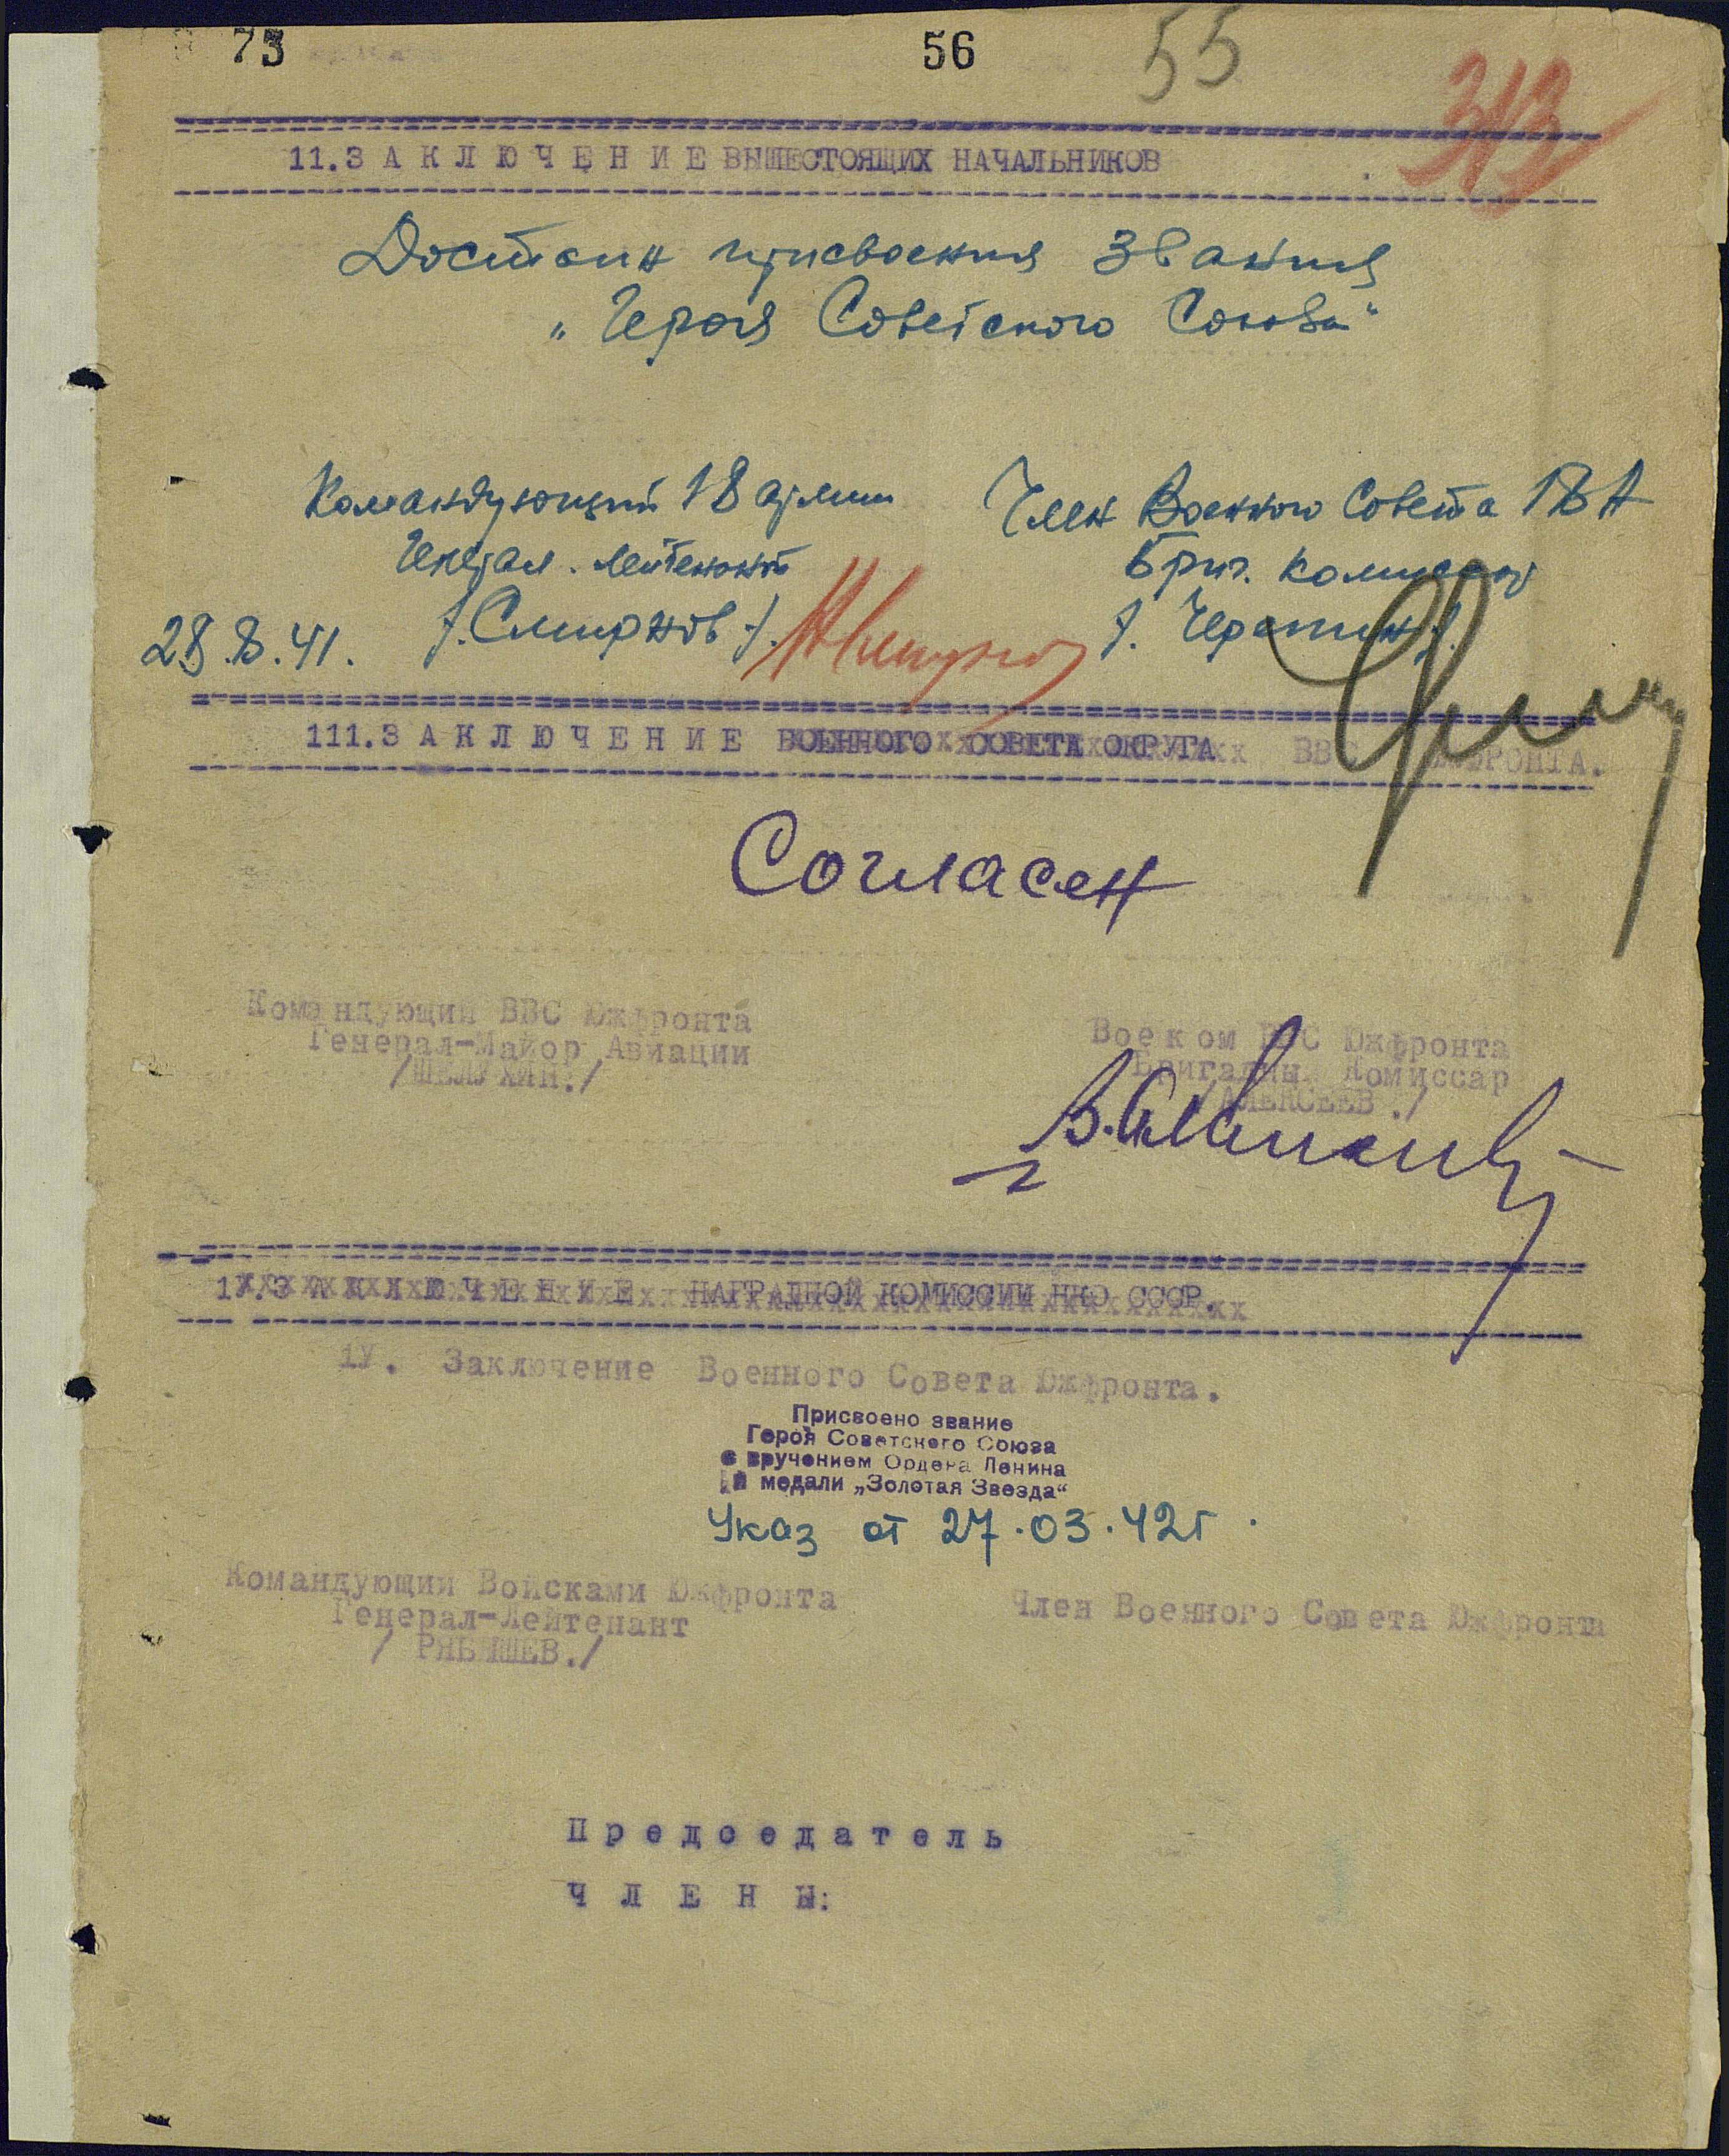 73
56
55
313
11.З А К Л Ю Ч Е Н И Е ВЫШЕСТОЯЩИХ НАЧАЛЬНИКОВ
Достоин присвоения звания
„Героя Советского Союза“
Командующий 18 армии
Генерал. лейтенант
/.Смирнов./
28.8.41.
Член Военного Совета 18 А
Бриг. комиссар
111.З А К Л Ю Ч Е Н И Е ВОЕННОГО СОВЕТА ОКРУГА ВВС ЮЖФРОНТА.
Согласен
Командующий ВВС Южфронта
Генерал-Майор Авиации
/ШЕЛУХИН./
Военком ВВС Южфронта
Бригадны Комиссар
/АЛЕКСЕЕВ./
1У.З А К Л Ю Ч Е Н И Е НАГРАДНОЙ КОМИССИИ НКО СССР.
1У. Заключение Военного Совета Южфронта.
Присвоено звание
Героя Советского Союза
с вручением Ордена Ленина
и медали „Золотая Звезда“
Указ от 27.03.42г.
Командующий Войсками Южфронта
Генерал-Лейтенант
/ РЯБЫШЕВ./
Член Военного Совета Южфронта
П р е д с е д а т е л ь
Ч Л Е Н Ы: